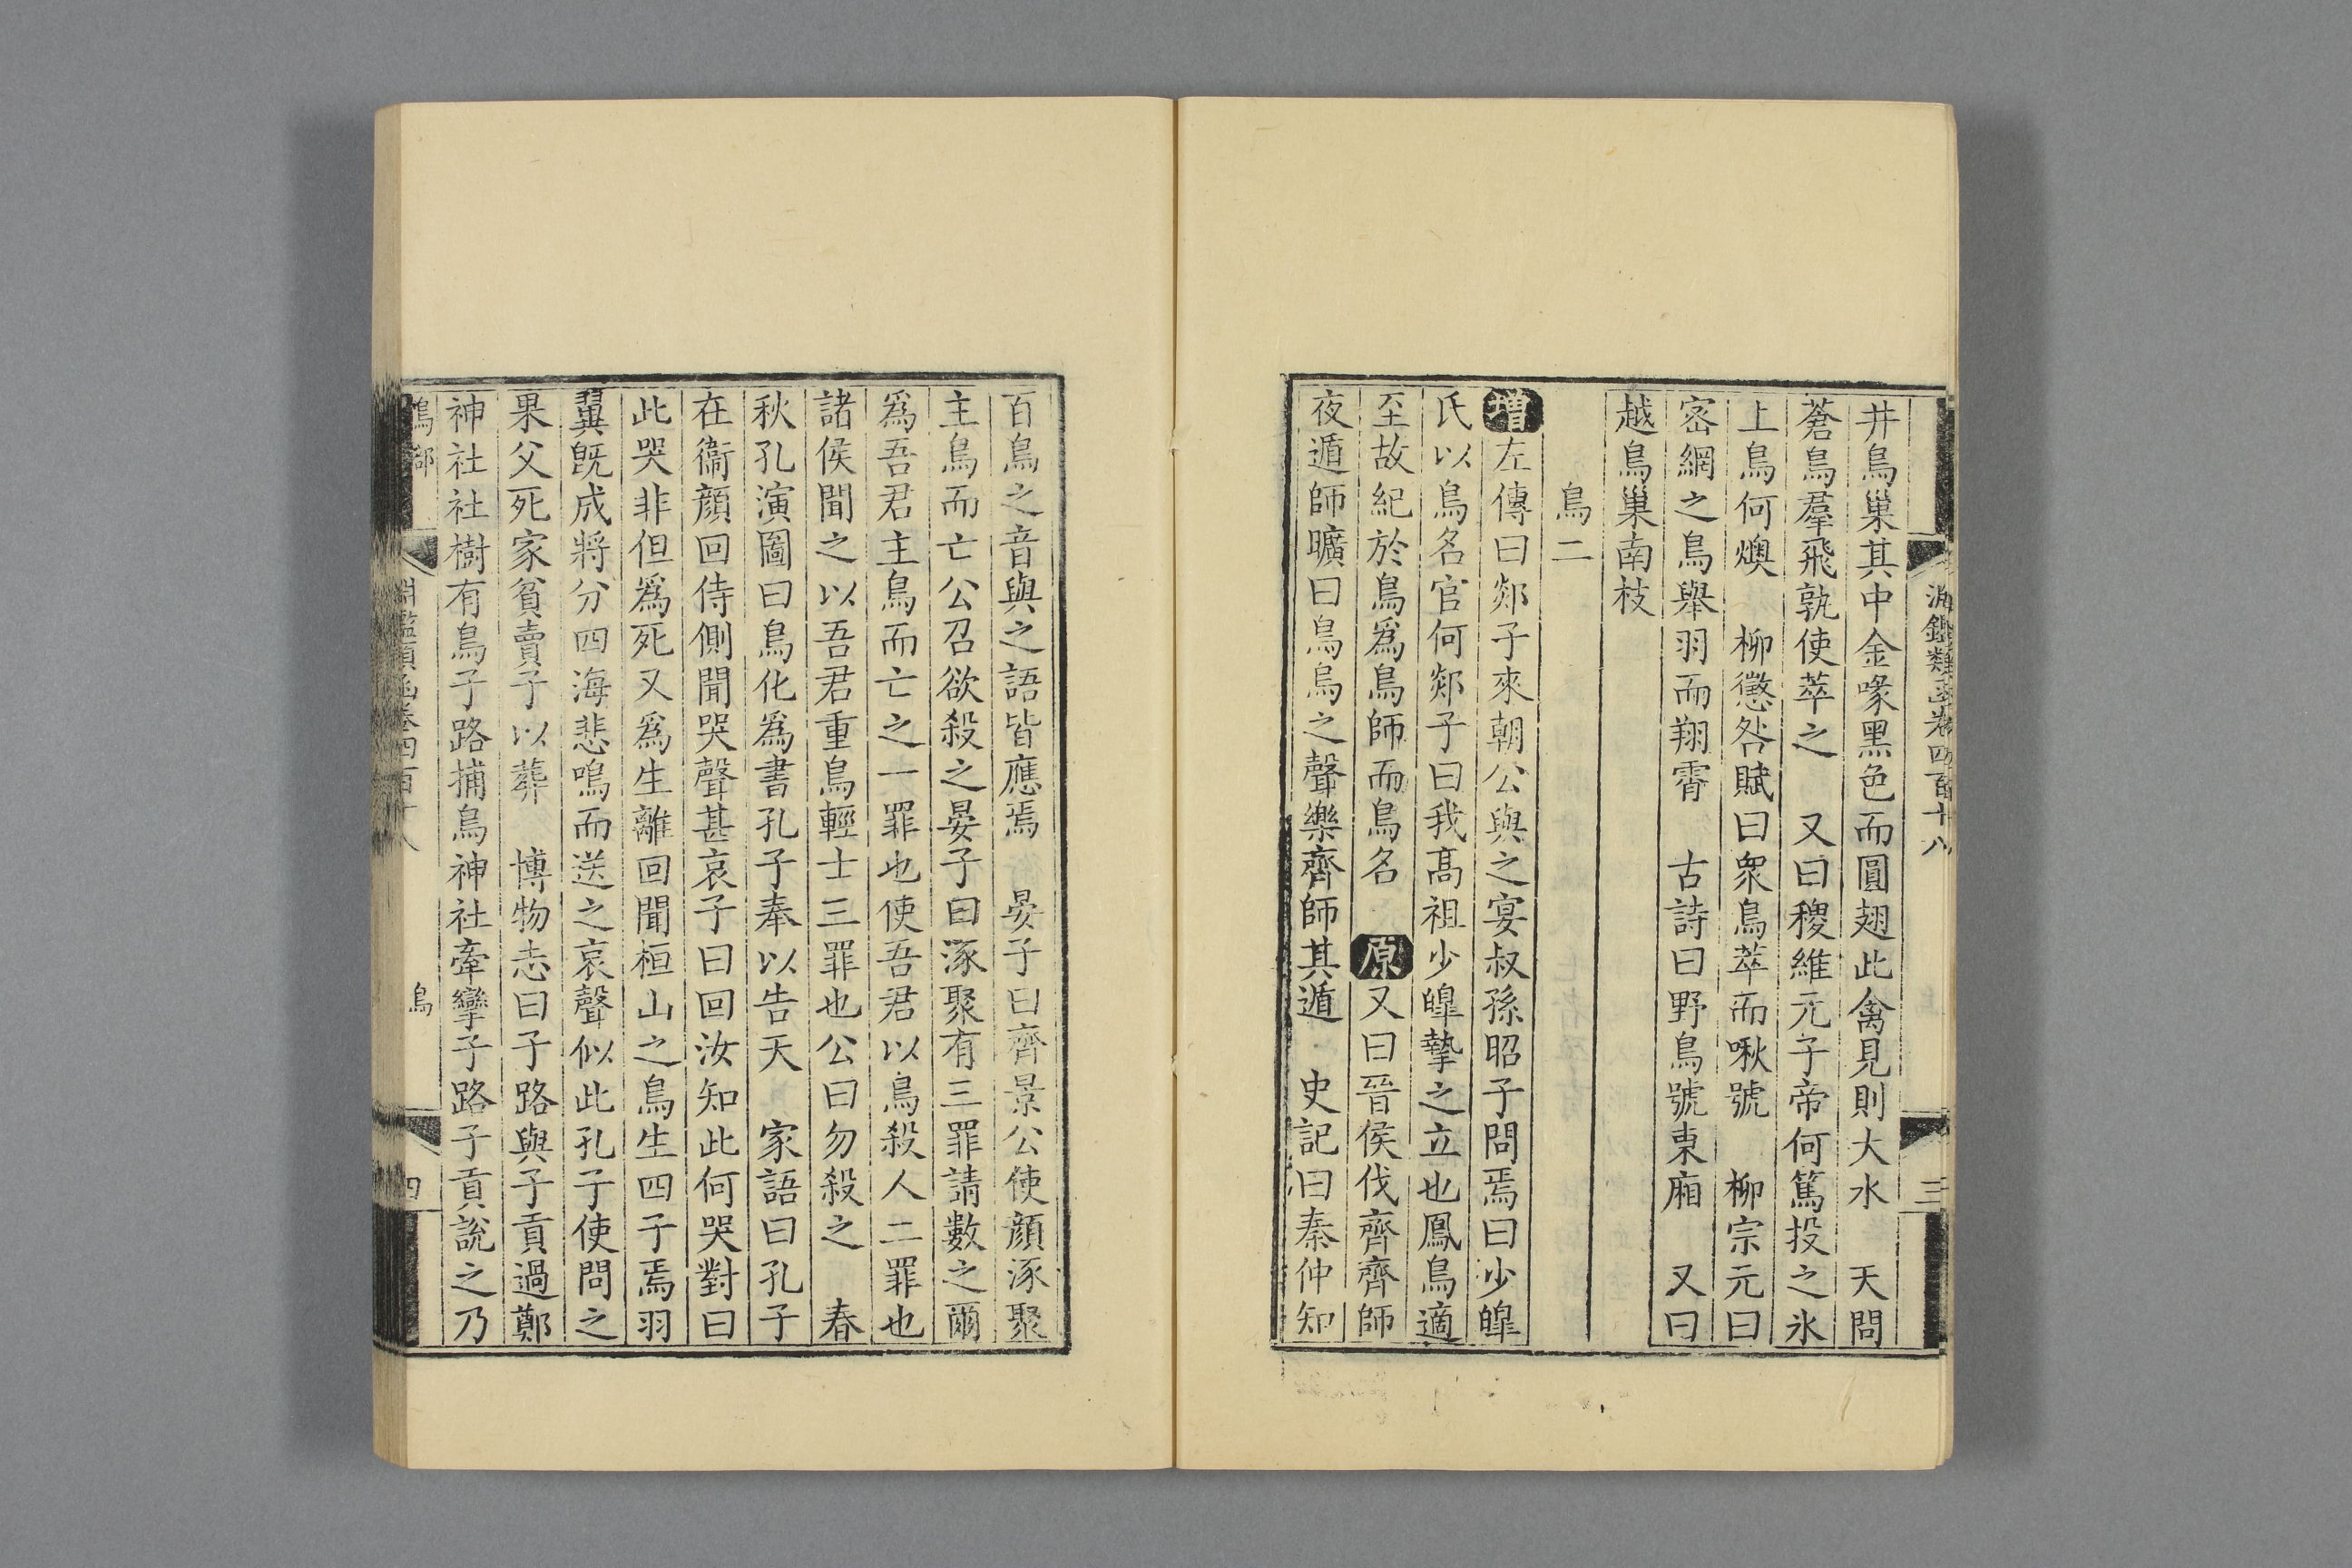 淵鑑類函卷四百十八
三
井鳥巢其中金喙黑色而圓翅此禽見則大水 天問
蒼鳥羣飛孰使萃之 又曰稷維元子帝何篤投之氷
上鳥何燠 柳懲咎賦曰衆鳥萃而啾號 柳宗元曰
密網之鳥舉羽而翔霄 古詩曰野鳥號東廂 又曰
越鳥巢南枝
鳥二
增左傳曰郯子來朝公與之宴叔孫昭子問焉曰少皥
氏以鳥名官何郯子曰我髙祖少皥摯之立也鳳鳥適
至故紀於鳥爲鳥師而鳥名 原又曰晉侯伐齊齊師
夜遁師曠曰鳥烏之聲樂齊師其遁 史記曰秦仲知
百鳥之音與之語皆應焉 晏子曰齊景公使顔涿聚
主鳥而亡公召欲殺之晏子曰涿聚有三罪請數之爾
爲吾君主鳥而亡之一罪也使吾君以鳥殺人二罪也
諸侯聞之以吾君重鳥輕士三罪也公曰勿殺之 春
秋孔演圖曰鳥化爲書孔子奉以告天 家語曰孔子
在衞顔回侍側聞哭聲甚哀子曰回汝知此何哭對曰
此哭非但爲死又爲生離回聞桓山之鳥生四子焉羽
翼旣成將分四海悲鳴而送之哀聲似此孔子使問之
果父死家貧賣子以葬 博物志曰子路與子貢過鄭
神社社樹有鳥子路捕鳥神社牽攣子路子貢說之乃
鳥部 淵鑑類函卷四百十八 鳥
四